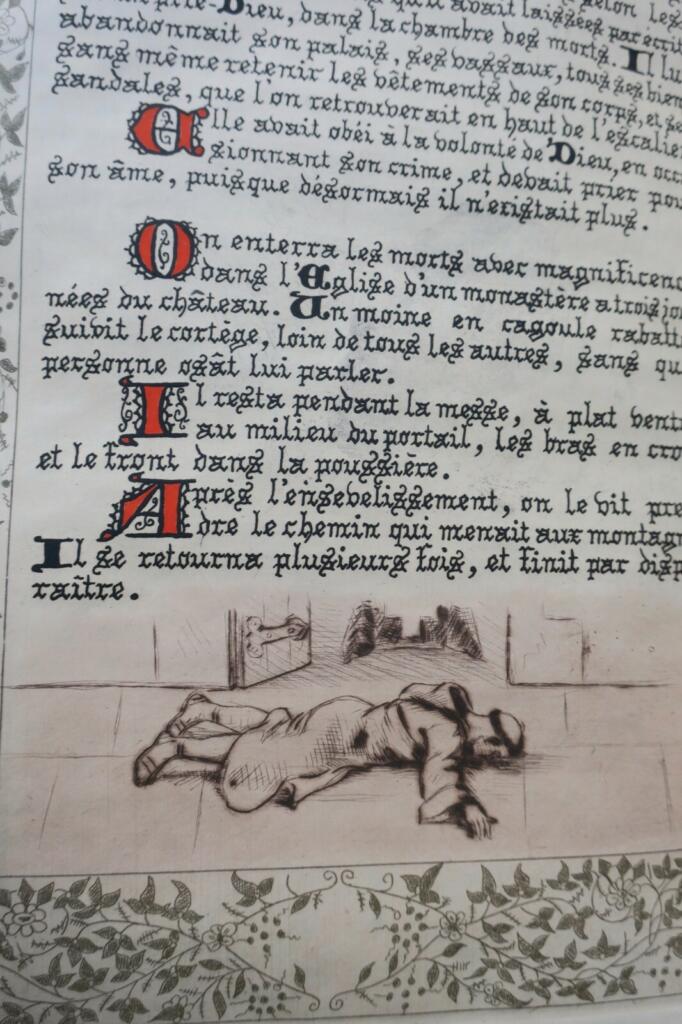 qu'il avait laissées par écrit
prie-Dieu, dans la chambre des morts. Il lu
abandonnait son palais, ses vassaux, tous ses bien
sans même retenir les vêtements de son corps, et se
sandales, que l'on retrouverait en haut de l'escalie
Elle avait obéi à la volonté de Dieu, en occ
sionnant son crime, et devait prier pou
son âme, puisque désormais il n'existait plus.
On enterra les morts avec magnificenc
dans l'Eglise d'un monastère a trois jo
nées du château. Un moine en cagoule rabatt
suivit le cortège, loin de tous les autres, sans qu
personne osât lui parler.
Il resta pendant la messe, à plat ventr
au milieu du portail, les bras en cro
et le front dans la poussière.
Après l'ensevelissement, on le vit pre
dre le chemin qui menait aux montagn
Il se retourna plusieurs fois, et finit par disp
raître.